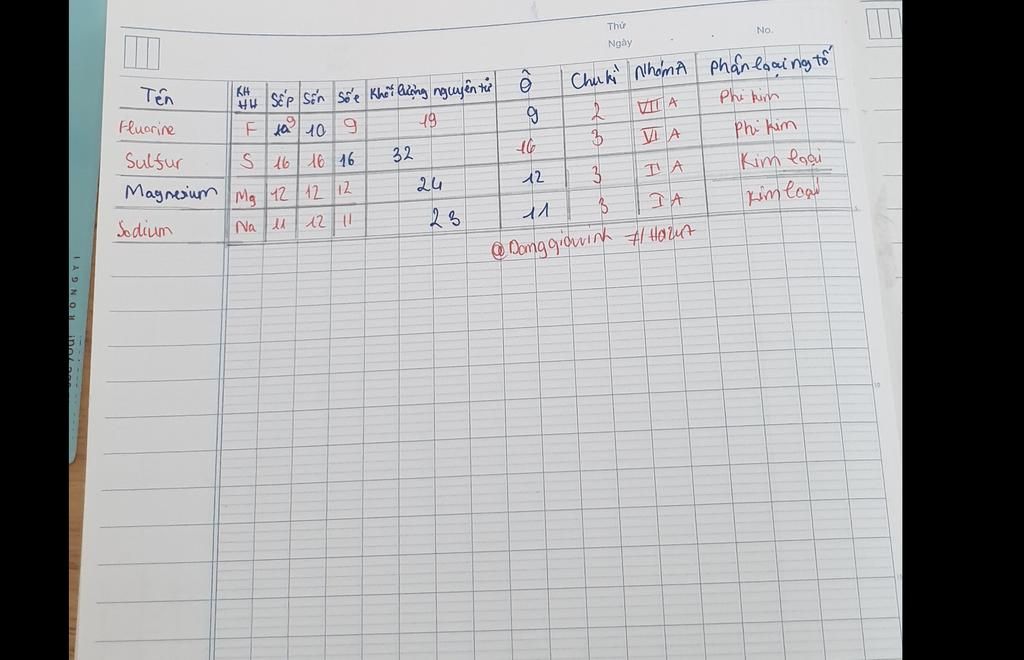 Thứ
Ngày
No.
Tên KH HH Số p Số n Số e Khối lượng nguyên tử Ô Chu kì Nhóm A Phân loại ng tố
Fluorine F 9 10 9 19 9 2 VII A Phi kim
Sulfur S 16 16 16 32 16 3 VI A Phi kim
Magnesium Mg 12 12 12 24 12 3 II A Kim loại
Sodium Na 11 12 11 23 11 3 I A Kim loại
RONGYI